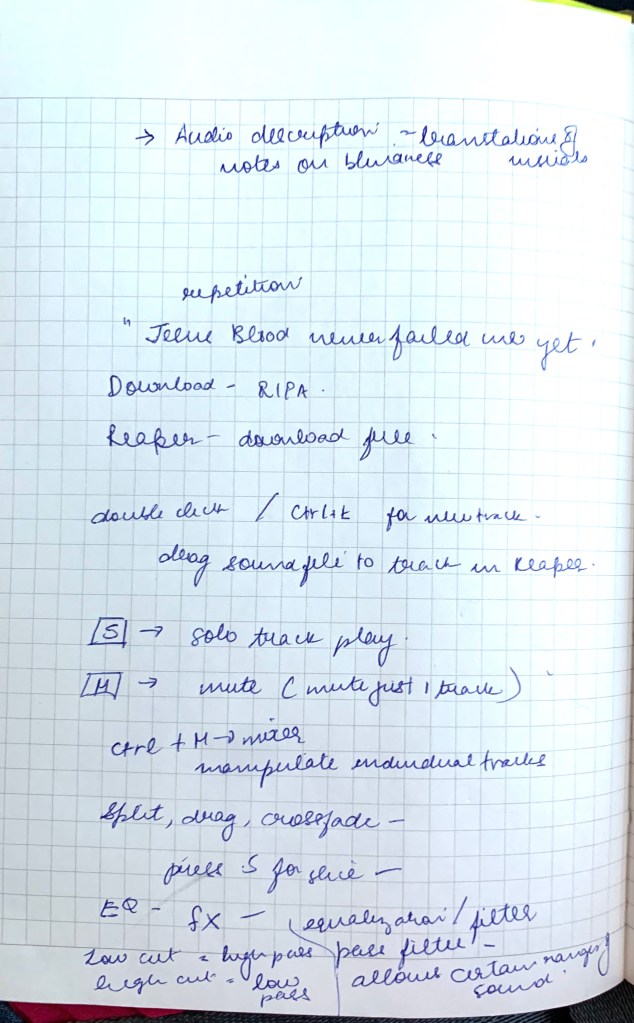 → Audio description - translation of
notes on blurriness visions
repetition
" Jesus Blood never failed me yet.
Download - RIPA.
Reaper - download free.
double click / Ctrl+t for new track.
drag sound file to track in Reaper.
[S] → solo track play.
[M] → mute (mute just 1 track)
Ctrl + M → mixer
manipulate individual tracks
Split, drag, crossfade -
press S for slice -
EQ - fx - equalization / filter
Low cut = high pass pass filter -
high cut = low pass allows certain ranges of
sound.